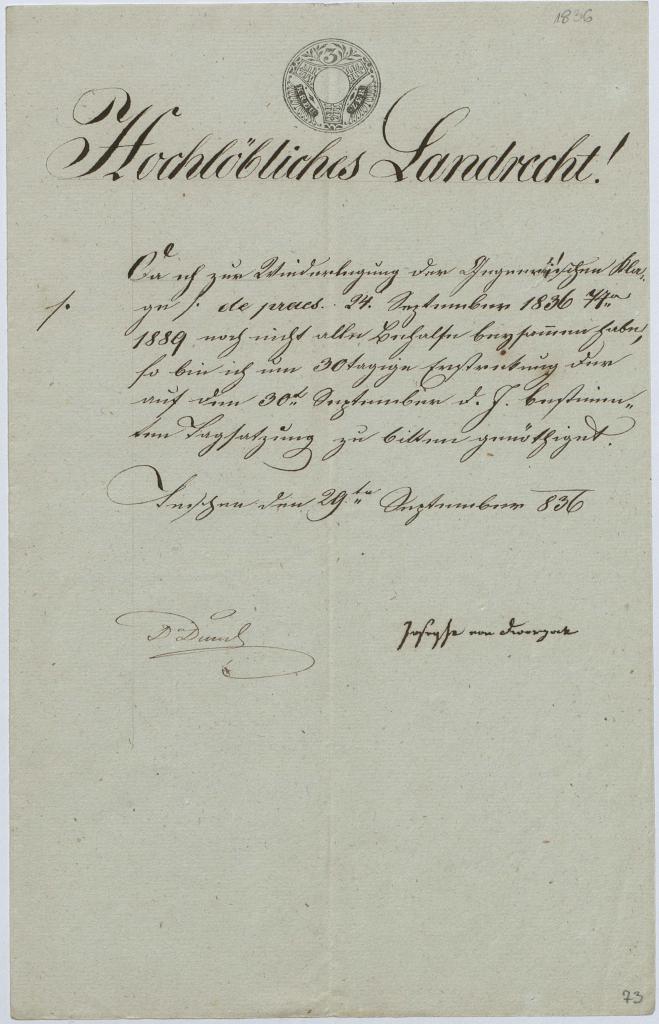 1836
3
KREU ZER
Hochlöbliches Landrecht!
Da ich zur Wiederlegung der gegnerischen Kla-
ge /. de praes. 24. September 1836
1889 noch nicht alle Behelfe beysammen habe,
so bin ich um 30tägige Erstreckung der
auf den 30t September d. J. bestimm-
ten Tagsatzung zu bitten genöthiget.
Teschen den 29ten September 836
Josepha von
73